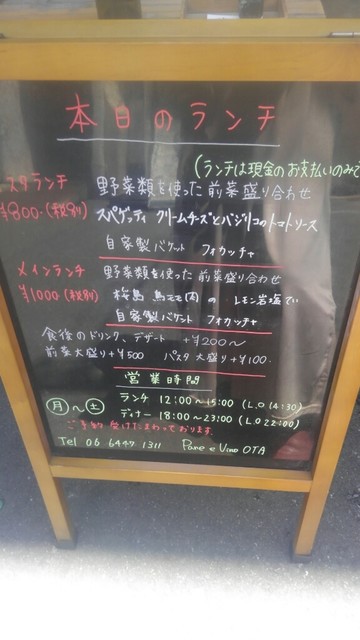 本日のランチ
(ランチは現金のお支払いのみで
スタランチ 野菜類を使った前菜盛り合わせ
¥800(税別) スパゲッティ クリームチーズとバジリコのトマトソース
自家製バケット フォカッチャ
メインランチ 野菜類を使った前菜盛り合わせ
¥1000(税別) 桜島鳥モモ肉の レモン岩塩
自家製バケット フォカッチャ
食後のドリンク、デザート +¥200〜
前菜大盛り+¥500 パスタ大盛り+¥100.
営業時間
月〜土 ランチ 12:00〜15:00 (L.O 14:30)
ディナー 18:00〜23:00 (L.O 22:00)
ご予約 受けたまわっております
Tel 06 6447 1311 Pane e Vino OTA